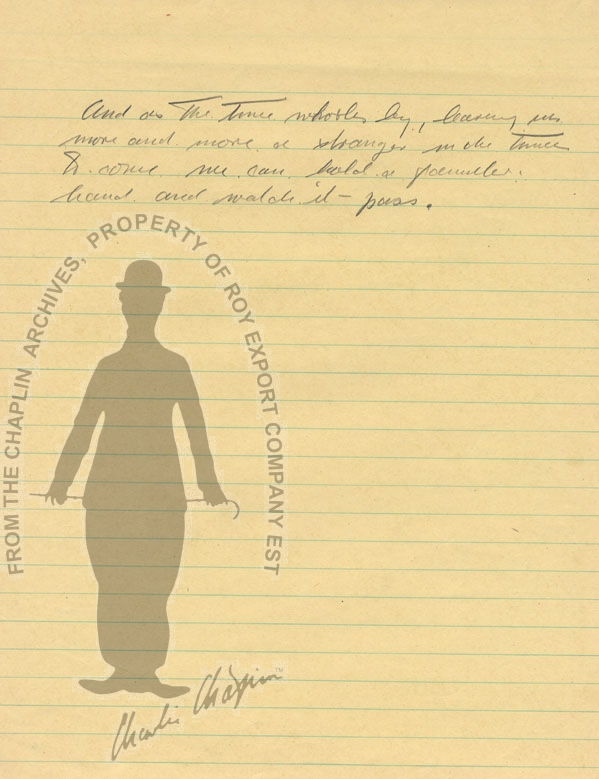 And as the time whistles by, leaving us
more and more a stranger in the times
to come we can hold a familiar
hand and watch it – pass.
FROM THE CHAPLIN ARCHIVES, PROPERTY OF ROY EXPORT COMPANY EST
Charlie Chaplin™